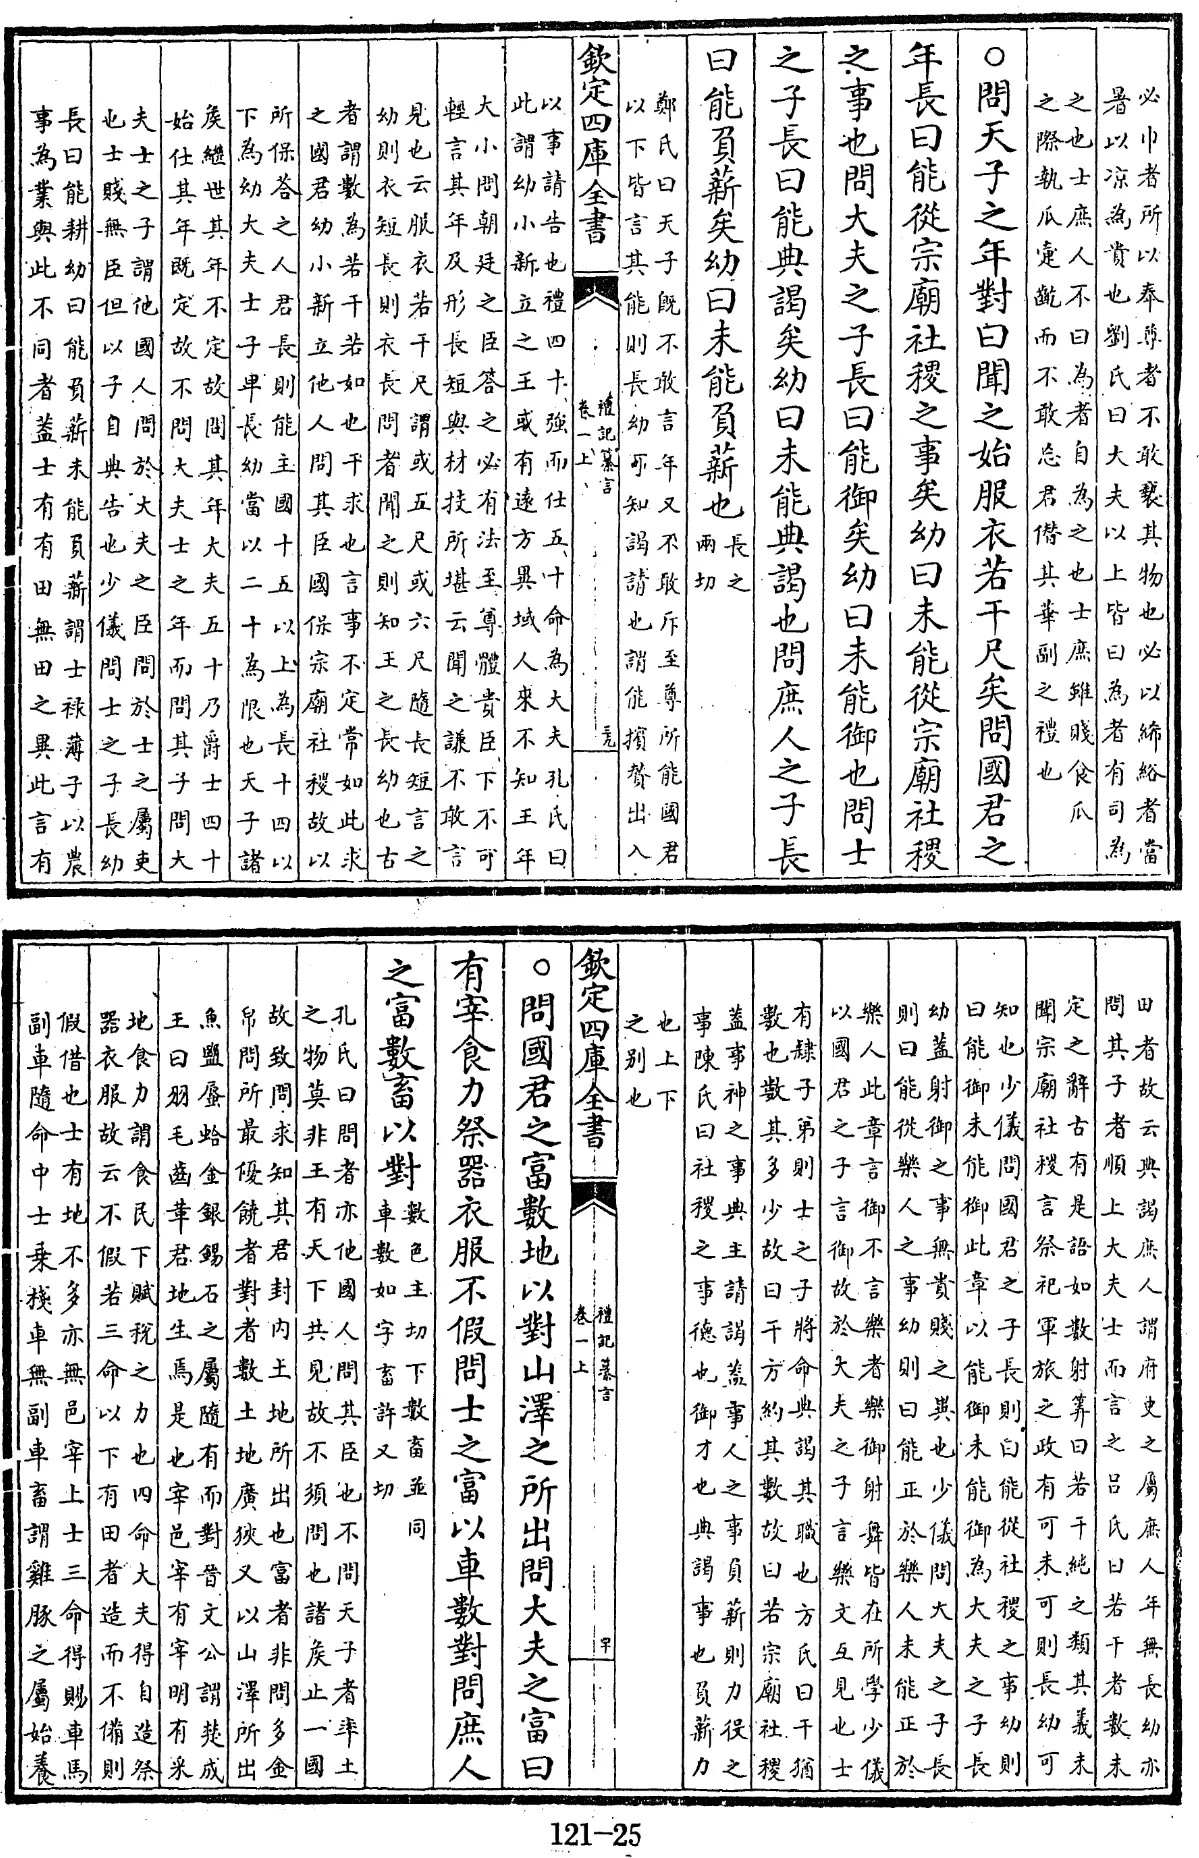 必巾者所以奉尊者不敢褻其物也必以絺綌者當
暑以凉為貴也劉氏曰大夫以上皆曰為者有司為
之也士庶人不曰為者自為之也士庶雖賤食瓜
之際執瓜疐齕而不敢忘君僭其華副之禮也
○問天子之年對曰聞之始服衣若干尺矣問國君之
年長曰能從宗廟社稷之事矣幼曰未能從宗廟社稷
之事也問大夫之子長曰能御矣幼曰未能御也問士
之子長曰能典謁矣幼曰未能典謁也問庶人之子長
曰能負薪矣幼曰未能負薪也長之
兩切
鄭氏曰天子既不敢言年又不敢斥至尊所能國君
以下皆言其能則長幼可知謁請也謂能擯贊出入
欽定四庫全書
禮記纂言
卷一上
以事請告也禮四十強而仕五十命為大夫孔氏曰
此謂幼小新立之王或有遠方異域人來不知王年
大小問朝廷之臣答之必有法至尊體貴臣下不可
輕言其年及形長短與材技所堪云聞之謙不敢言
見也云服衣若干尺謂或五尺或六尺隨長短言之
幼則衣短長則衣長問者聞之則知王之長幼也古
者謂數為若干若如也干求也言事不定常如此求
之國君幼小新立他人問其臣國保宗廟社稷故以
所保答之人君長則能主國十五以上為長十四以
下為幼大夫士子卑長幼當以二十為限也天子諸
矦繼世其年不定故問其年大夫五十乃爵士四十
始仕其年既定故不問大夫士之年而問其子問大
夫士之子謂他國人問於大夫之臣問於士之屬吏
也士賤無臣但以子自典告也少儀問士之子長幼
長曰能耕幼曰能負薪未能負薪謂士祿薄子以農
事為業與此不同者葢士有有田無田之異此言有
田者故云典謁庶人謂府史之屬庶人年無長幼亦
問其子者順上大夫士而言之吕氏曰若干者數未
定之辭古有是語如數射筭曰若干純之類其義未
聞宗廟社稷言祭祀軍旅之政有可未可則長幼可
知也少儀問國君之子長則曰能從社稷之事幼則
曰能御未能御此章以能御未能御為大夫之子長
幼葢射御之事無貴賤之異也少儀問大夫之子長
則曰能從樂人之事幼則曰能正於樂人未能正於
樂人此章言御不言樂者樂御射舞皆在所學少儀
以國君之子言御故於大夫之子言樂文互見也士
有隸子弟則士之子將命典謁其職也方氏曰干猶
數也數其多少故曰干方約其數故曰若宗廟社稷
葢事神之事典主請謁葢事人之事負薪則力役之
事陳氏曰社稷之事德也御才也典謁事也負薪力
也上下
之别也
欽定四庫全書
禮記纂言
卷一上
○問國君之富數地以對山澤之所出問大夫之富曰
有宰食力祭器衣服不假問士之富以車數對問庶人
之富數畜以對數色主切下數畜並同
車數如字畜許又切
孔氏曰問者亦他國人問其臣也不問天子者率土
之物莫非王有天下共見故不須問也諸矦止一國
故致問求知其君封内土地所出也富者非問多金
帛問所最優饒者對者數土地廣狹又以山澤所出
魚鹽蜃蛤金銀錫石之屬隨有而對晉文公謂楚成
王曰羽毛齒革君地生焉是也宰邑宰有宰明有采
地食力謂食民下賦稅之力也四命大夫得自造祭
器衣服故云不假若三命以下有田者造而不備則
假借也士有地不多亦無邑宰上士三命得賜車馬
副車隨命中士乗棧車無副車畜謂雞豚之屬始養
121-25